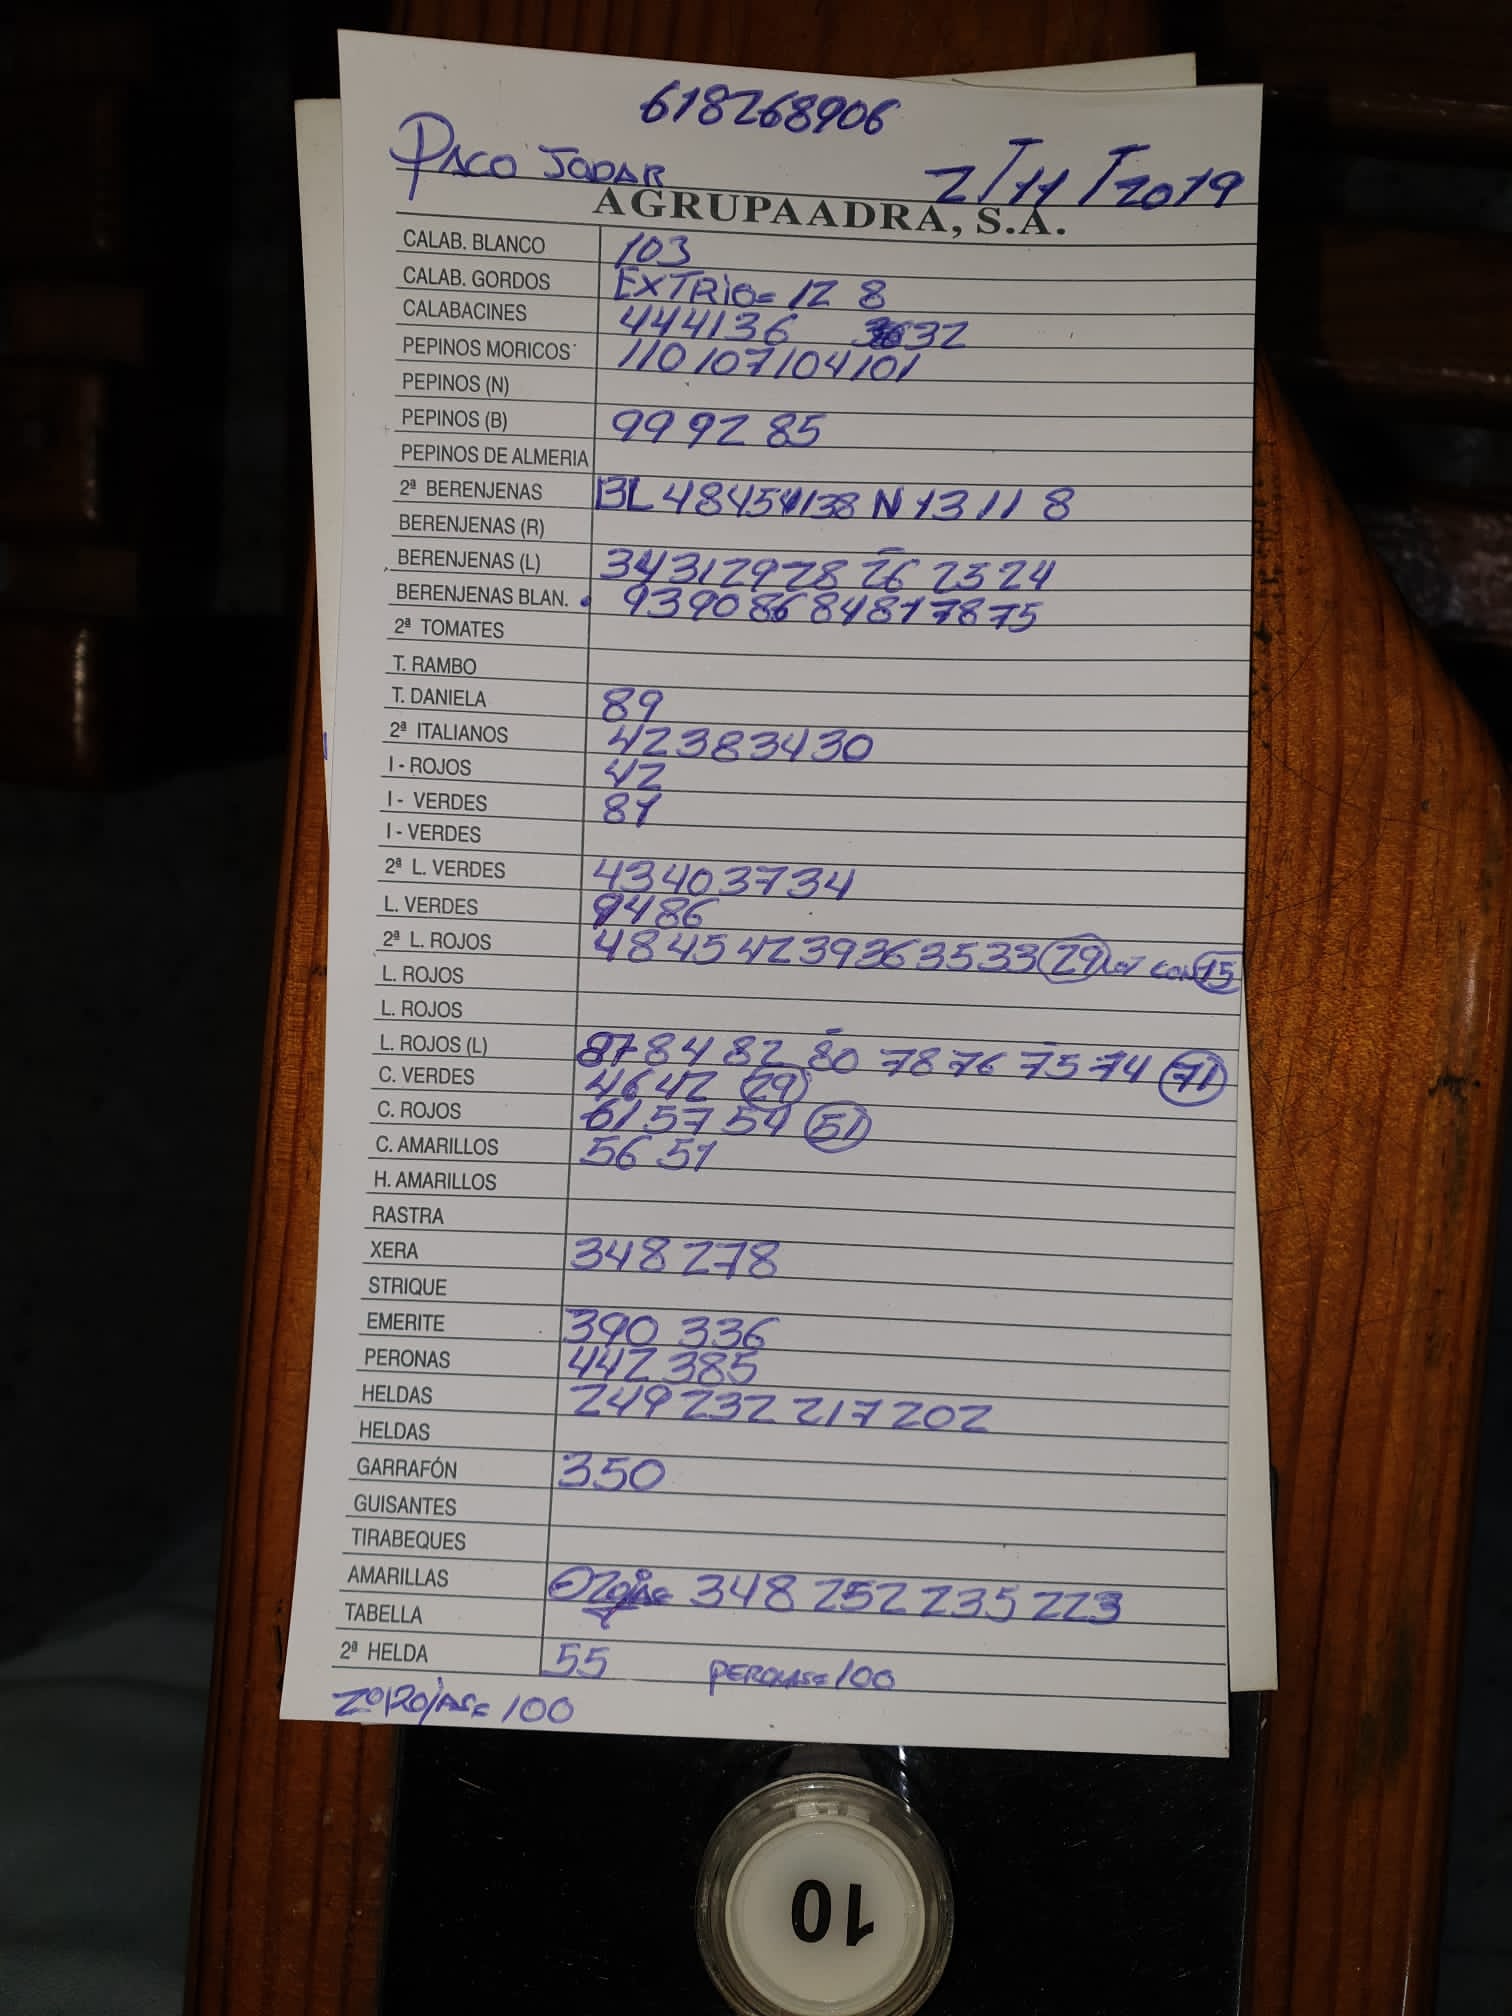 618268906
PACO JODAR 2/11/2019
AGRUPAADRA, S.A.
CALAB. BLANCO 103
CALAB. GORDOS EXTRIO= 12 8
CALABACINES 44 41 36 32
PEPINOS MORICOS 110 107 104 101
PEPINOS (N)
PEPINOS (B) 99 92 85
PEPINOS DE ALMERIA
2ª BERENJENAS BL 48 45 41 38 N 13 11 8
BERENJENAS (R)
BERENJENAS (L) 34 31 29 28 26 25 24
BERENJENAS BLAN. 93 90 86 84 81 78 75
2ª TOMATES
T. RAMBO
T. DANIELA 89
2ª ITALIANOS 42 38 34 30
I - ROJOS 42
I - VERDES 81
I - VERDES
2ª L. VERDES 43 40 37 34
L. VERDES 94 86
2ª L. ROJOS 48 45 42 39 36 35 33 29 CON 15
L. ROJOS
L. ROJOS
L. ROJOS (L) 87 84 82 80 78 76 75 74 71
C. VERDES 46 42 29
C. ROJOS 61 57 54 51
C. AMARILLOS 56 51
H. AMARILLOS
RASTRA
XERA 348 278
STRIQUE
EMERITE 390 336
PERONAS 442 385
HELDAS 249 232 217 202
HELDAS
GARRAFÓN 350
GUISANTES
TIRABEQUES
AMARILLAS 348 252 235 223
TABELLA
2ª HELDA 55 PERONAS= 100
2ª ROJAS= 100
10